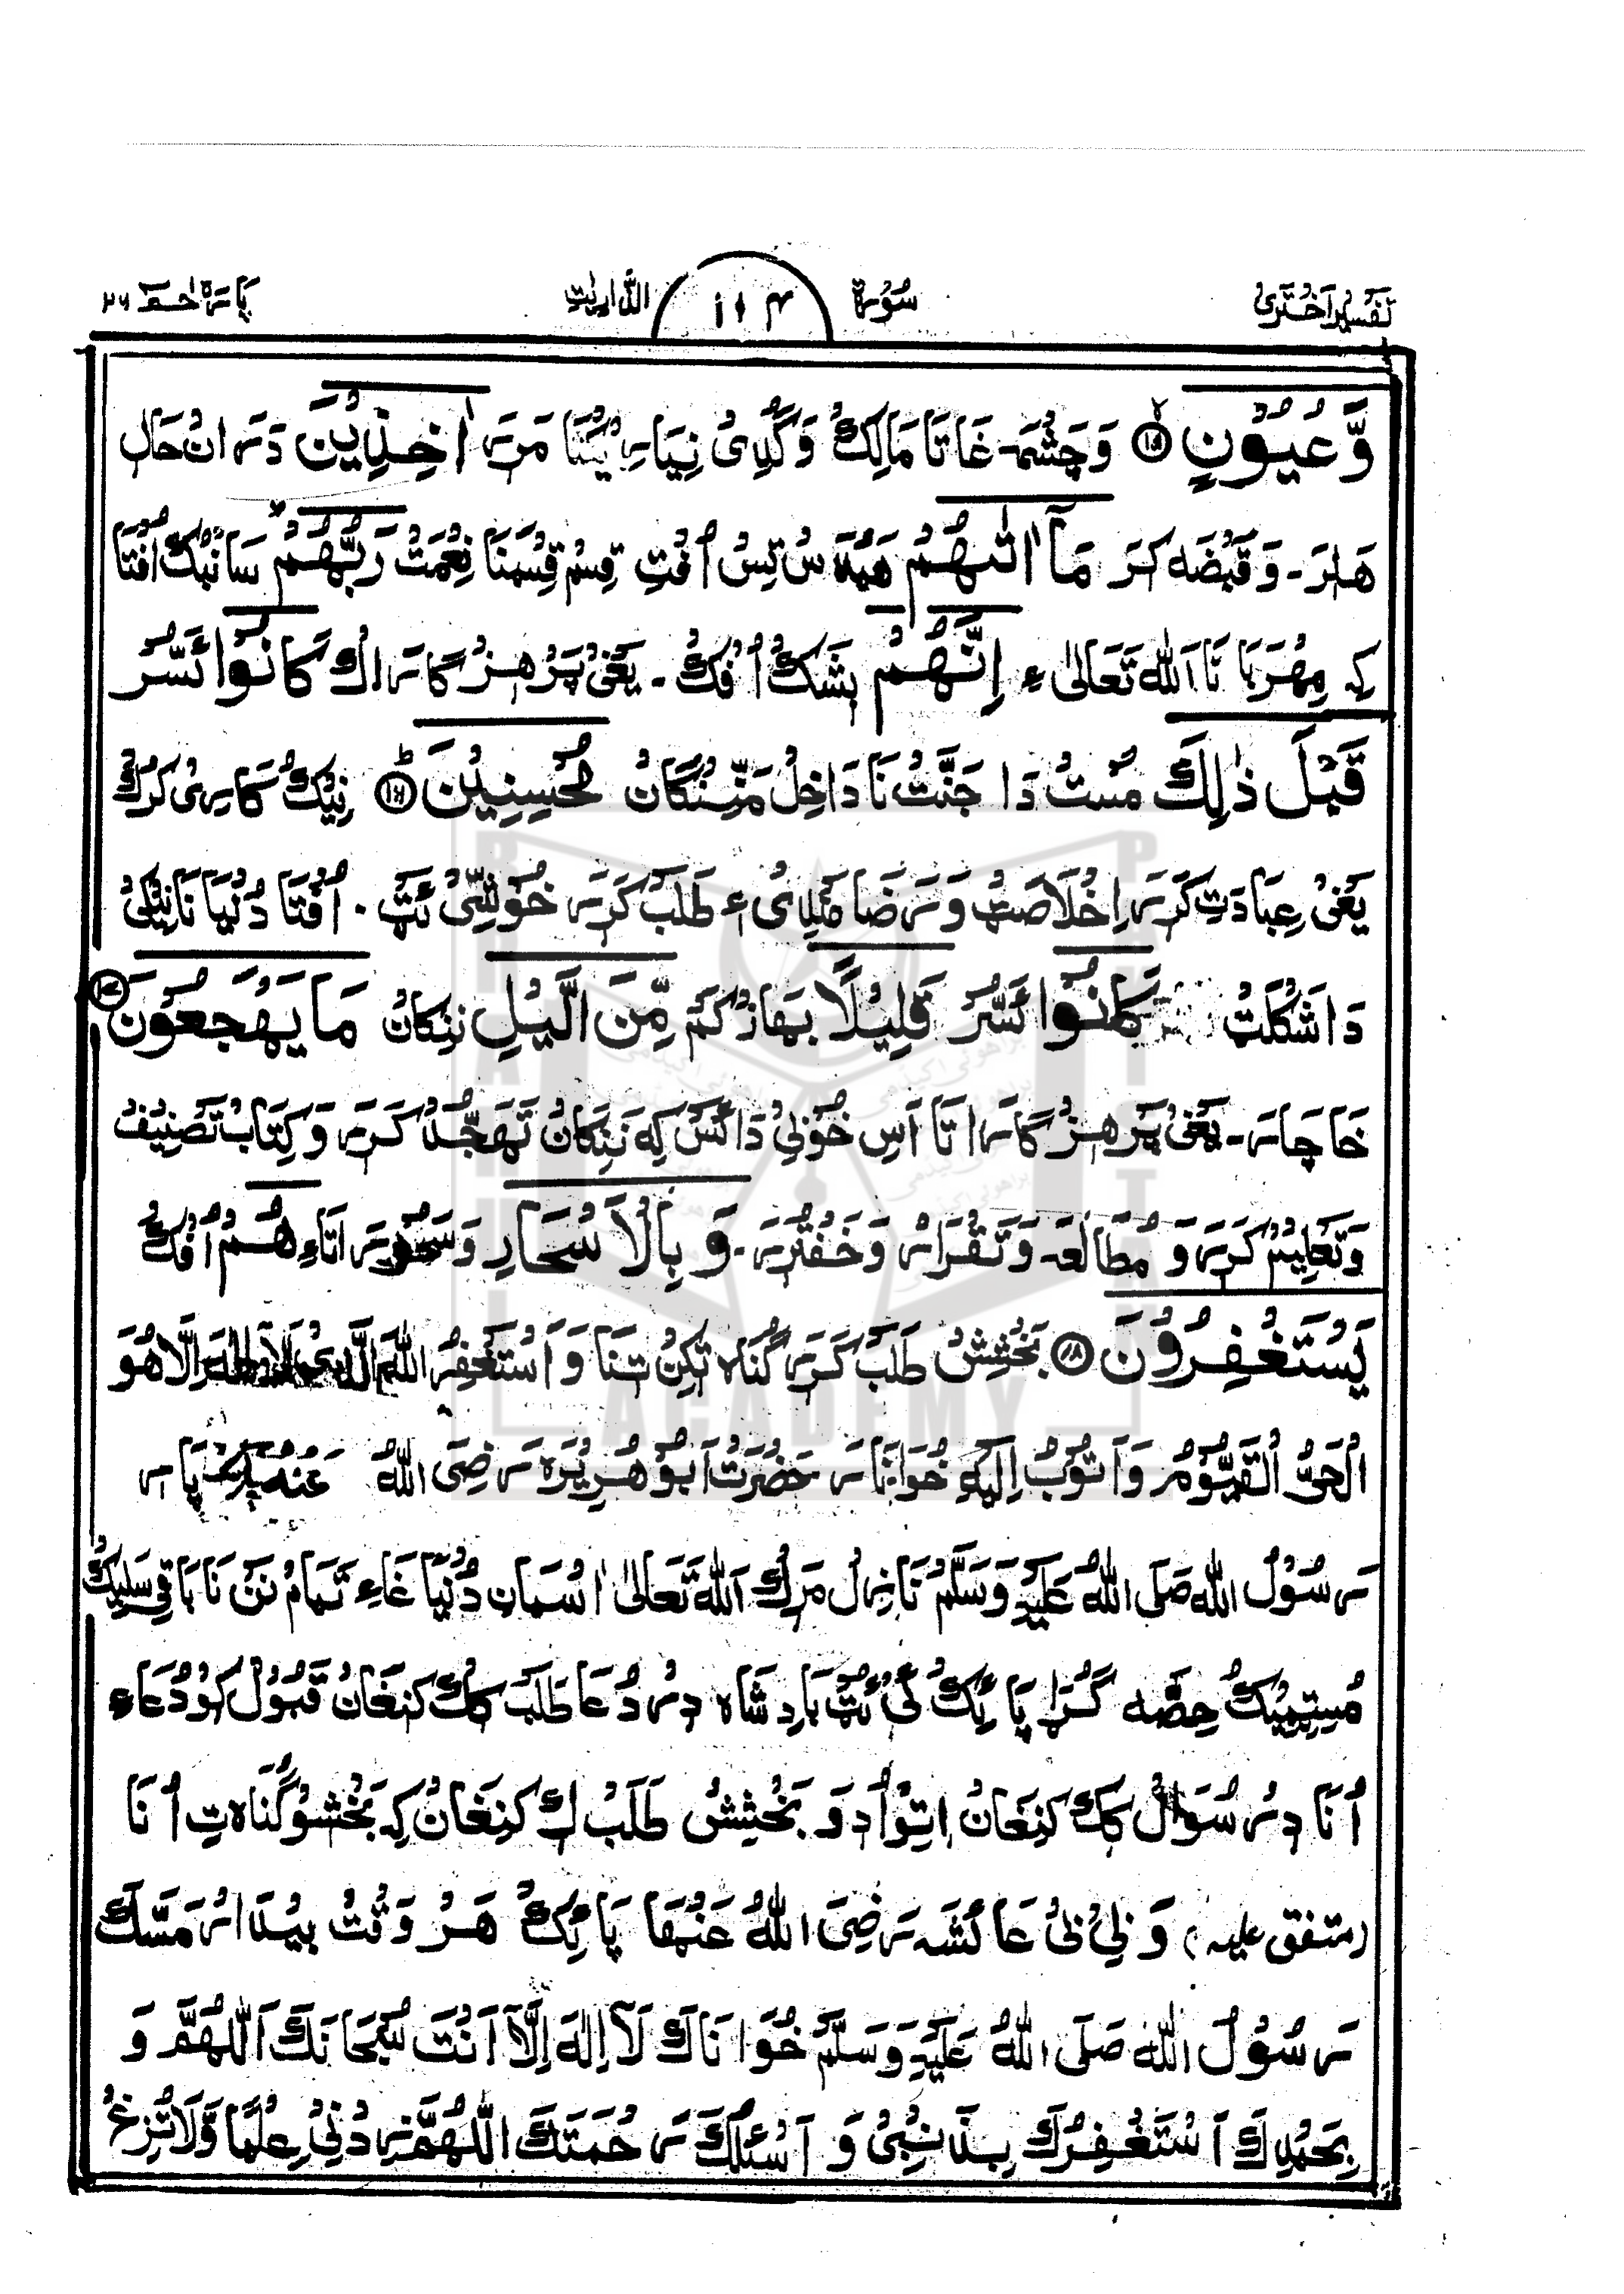 تَفْسِیْرِ اَخْتَرِیْ سُوْرَة ۱۰۴ الذّٰارِیٰتِ پَارَہ حٰمٓ ۲۶
وَّعُیُوْنٍ ﴿۱۵﴾ وَچَشْمَہ غَاتَا مَالِکُ وَکُدِیْ نِیَامِ مَرِیَہ اٰخِذِیْنَ دَرَانُ حَال
ھَلَرَ۔ وَقَبْضَہ کَرَ مَآ اٰتٰىھُمْ ھَبَہ سُ تِسُ اُفْتِ قِسْم قِسْمَنَا نِعْمَتْ رَبُّھُمْ سَانَبْکُ اُفْتَا
کِہ مِھْرَبَانَا اَللّٰہ تَعَالٰی ءِ اِنَّھُمْ بِشَکْ اُفْکُ۔ یَعْنِیْ پَرْھِیْزْگَارَاکْ کَانُوْا ئَسُّرْ
قَبْلَ ذٰلِکَ مُسْتُ دَا جَنَّتْ نَا دَاخِلْ مَنِّنْگَانْ مُحْسِنِیْنَ ﴿۱۶﴾ نِیْکُ کَارِیْ کَرُکْ
یَعْنِیْ عِبَادَتِ کَرِیَہ اِخْلَاصَتْ وَرَضَامَنْدِیْ ءِ طَلَبْ کَرِیَہ خُوْلِیْ ئَتْ۔ اُفْتَا دُنْیَا نَا نِیْکِیْ
دَاشَکَلْتْ کَانُوْا ئَسُّرْ قَلِیْلًا بَھَازْ کَمْ مِّنَ الَّیْلِ نَنِکَانْ مَا یَھْجَعُوْنَ ﴿۱۷﴾
خَاچَارَہ۔ یَعْنِیْ پَرْھِیْزْ گَارَاتَا اَسِ خُوْبِیْ دَائَسْ کِہ نَنِکَانْ تَھَجُّدْ کَرِیَہ وَکِتَابْ تَصْنِیْفْ
وَتَعْلِیْمْ کَرِیَہ وَ مُطَالَعَہ۔ وَتَقْرَارْ وَخَفْتِرِیَہ۔ وَ بِالْاَسْحَارِ وَسَحَرَاتَاءِ ھُمْ اُفْکُ
یَسْتَغْفِرُوْنَ ﴿۱۸﴾ بَخْشِشْ طَلَبْ کَرِیَہ گُنَاہ تِکِنْ تَنَا وَاَسْتَغْفِرُ اللّٰہَ الَّذِیْ لَآ اِلٰہَ اِلَّا ھُوَ
الْحَیُّ الْقَیُّوْمُ وَاَتُوْبُ اِلَیْہِ خُوَانَارَ حَضْرَتْ اَبُوْ ھُرَیْرَہ رَضِیَ اللّٰہُ عَنْہُ پَارَ
رَسُوْلُ اللّٰہِ صَلَّی اللّٰہُ عَلَیْہِ وَسَلَّمْ نَازِلْ مَرِکْ اَللّٰہ تَعَالٰی اٰسْمَانِ دُنْیَا غَاءِ تَمَامْ نَنْ نَا بَاقِیْ سَلِیْکْ
مُسِتِمِیْکُ حِصَّہ گُڑَا پَائِکْ کُنْ ئَتْ بَادِشَاہ دِرْ دُعَا طَلَبْ کِکْ کَنِغَانْ قَبُوْلْ کَوْدُعَاءِ
اُنَا دِرْ سُوَالْ کِکْ کَنِغَانْ اِتِوْاُدِ وَ بَخْشِشْ طَلَبْ کِکْ کَنِغَانْ کِہ بَخْشِوْ گُنَاہ تِ اُنَا
(متفق علیہ) وَ بِیْ بِیْ عَائِشَہ رَضِیَ اللّٰہُ عَنْھَا پَائِکْ ھَرْ وَقْتْ بِیْدَارْ مَسَّکْ
رَسُوْلَ اللّٰہِ صَلَّی اللّٰہُ عَلَیْہِ وَسَلَّمْ خُوَانَاکْ لَآ اِلٰہَ اِلَّآ اَنْتَ سُبْحَانَکَ اَللّٰھُمَّ وَ
بِحَمْدِکَ اَسْتَغْفِرُکَ بِذَنْبِیْ وَ اَسْئَلُکَ رَحْمَتَکَ اللّٰھُمَّ زِدْنِیْ عِلْمًا وَّلَا تُزِغْ
BRAHUI ACADEMY PAKISTAN